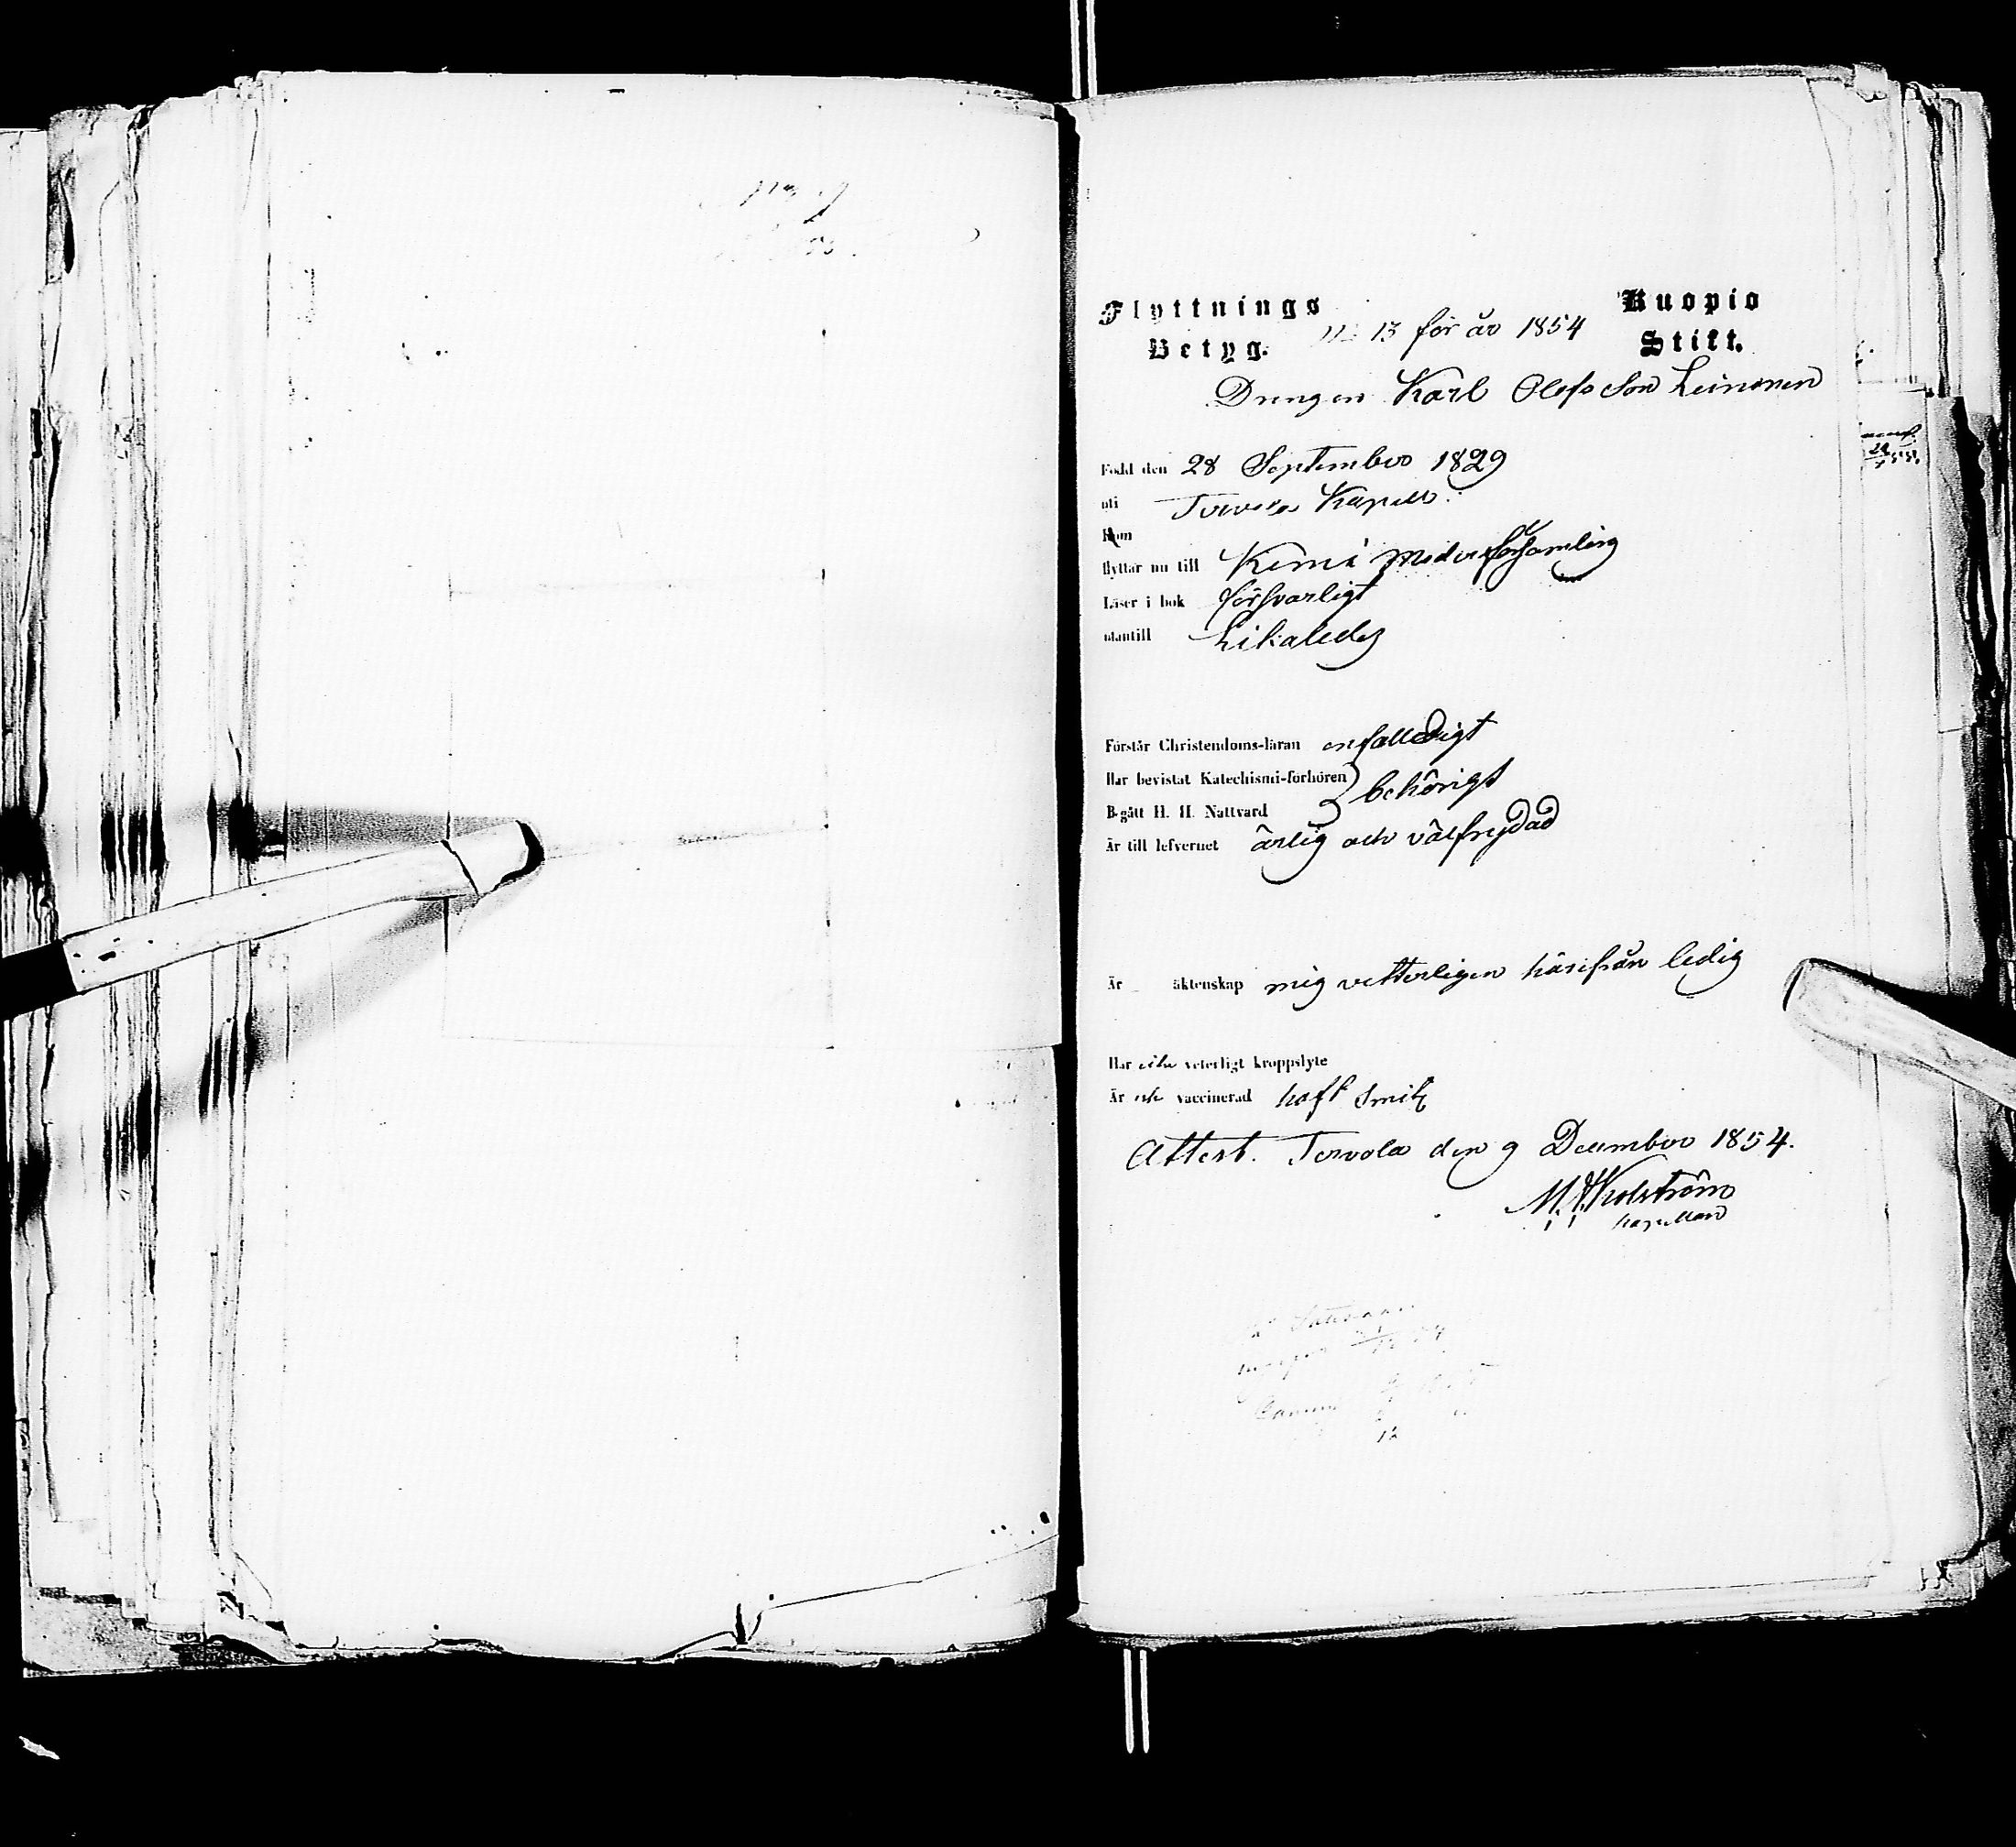 Flyttnings Betyg.
No 13 för år 1854
Kuopio Stift.
Drengen Karl Olofs Son Leinonen
Född den 28 September 1829
uti Tervola Kapell
Kom
flyttar nu till Kemi Moderförsamling
Läser i bok försvarligt
utantill Likaledes
Förstår Christendoms-läran enfalledigt
Har bevistat Katechismi-förhören
Begått H. H. Nattvard behörigt
Är till lefvernet ärlig och välfrejdad
Är äktenskap mig vetterligen härifrån ledig
Har icke veterligt kroppslyte
Är ej vaccinerad haft Smitt
Attest. Tervola den 9 December 1854.
Kapellan
12